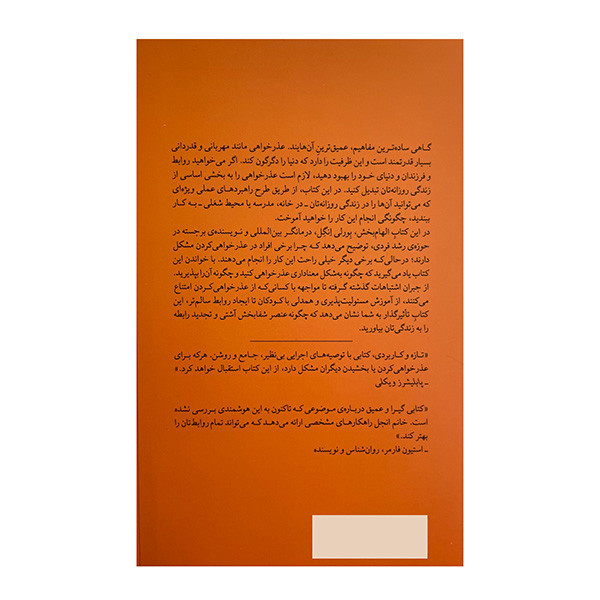 گاهی ساده‌ترین مفاهیم، عمیق‌ترین آن‌هایند. عذرخواهی مانند مهربانی و قدردانی
بسیار قدرتمند است و این ظرفیت را دارد که دنیا را دگرگون کند. اگر می‌خواهید روابط
و فرزندان و دنیای خود را بهبود دهید، لازم است عذرخواهی را به بخشی اساسی از
زندگی روزانه‌تان تبدیل کنید. در این کتاب، از طریق طرح راهبردهای عملی ویژه‌ای
که می‌توانید آن‌ها را در زندگی روزانه‌تان ـ در خانه، مدرسه یا محیط شغلی ـ به کار
ببندید، چگونگی انجام این کار را خواهید آموخت.
در این کتاب الهام‌بخش، بورلی اِنگِل، درمانگر بین‌المللی و نویسنده‌ی برجسته در
حوزه‌ی رشد فردی، توضیح می‌دهد که چرا برخی افراد در عذرخواهی‌کردن مشکل
دارند؛ درحالی‌که برخی دیگر خیلی راحت این کار را انجام می‌دهند. با خواندن این
کتاب یاد می‌گیرید که چگونه به‌شکل معناداری عذرخواهی کنید و چگونه آن را بپذیرید.
از جبران اشتباهات گذشته گرفته تا مواجهه با کسانی‌که از عذرخواهی‌کردن امتناع
می‌کنند، از آموزش مسئولیت‌پذیری و همدلی با کودکان تا ایجاد روابط سالم‌تر، این
کتابِ تأثیرگذار به شما نشان می‌دهد که چگونه عنصر شفابخش آشتی و تجدید رابطه
را به زندگی‌تان بیاورید.
«تازه و کاربردی، کتابی با توصیه‌های اجرایی بی‌نظیر، جامع و روشن. هرکه برای
عذرخواهی‌کردن یا بخشیدن دیگران مشکل دارد، از این کتاب استقبال خواهد کرد.»
ـ پابلیشرز ویکلی
«کتابی گیرا و عمیق درباره‌ی موضوعی که تاکنون به این هوشمندی بررسی نشده
است. خانم انجل راهکارهای مشخصی ارائه می‌دهد که می‌تواند تمام روابط‌تان را
بهتر کند.»
ـ استیون فارمر، روان‌شناس و نویسنده